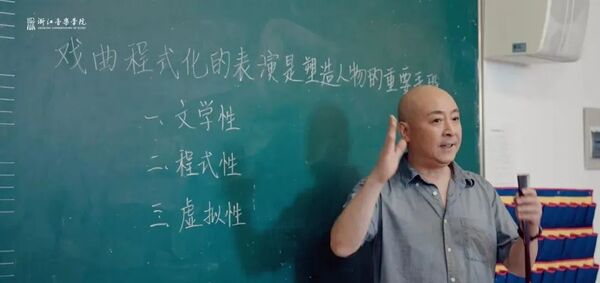 浙江音乐学院
戏曲程式化的表演是塑造人物的重要手段
一、文学性
二、程式性
三、虚拟性